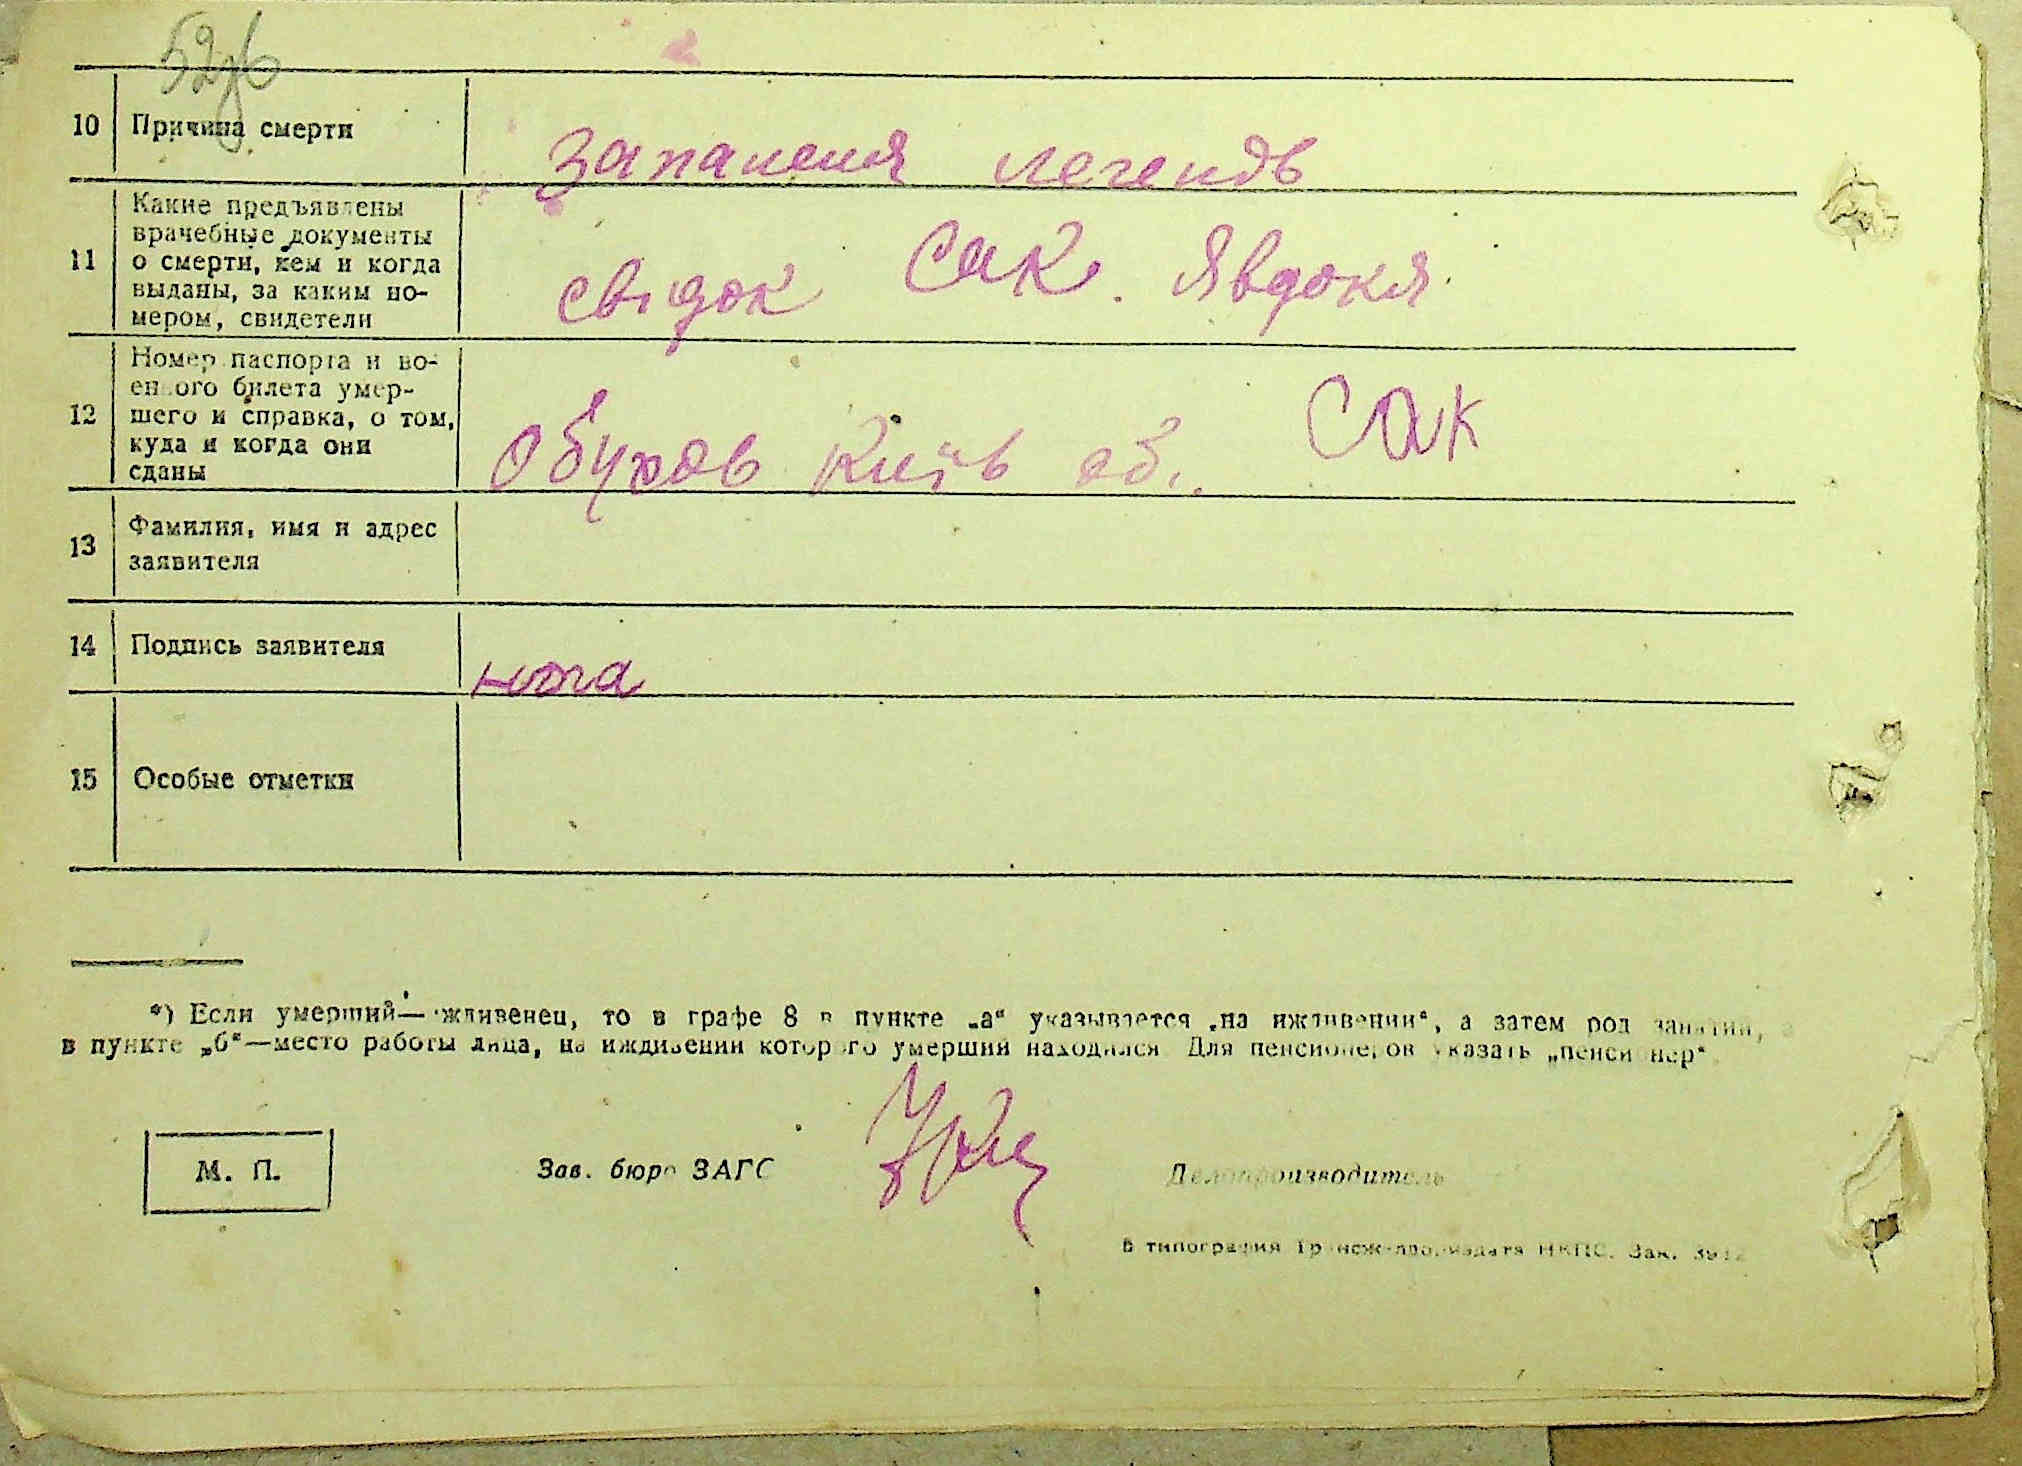 52
10 Причина смерти
Запаленя легендь
11 Какие предъявлены
врачебные документы
о смерти, кем и когда
выданы, за каким но-
мером, свидетели
свідок Сак. Явдокя
12 Номер паспорта и во-
енного билета умер-
шего и справка, о том,
куда и когда они
сданы
Обухов Київ об. Сак
13 Фамилия, имя и адрес
заявителя
14 Подпись заявителя
15 Особые отметки
*) Если умерший— иждивенец, то в графе 8 в пункте „а“ указывается „на иждивении“, а затем род занятий, а
в пункте „б“—место работы лица, на иждивении которого умерший находился Для пенсионеров указать „пенсионер“
М. П.
Зав. бюро ЗАГС
Делопроизводитель
В типографии Трансжелдориздата НКПС. Зак. 3912